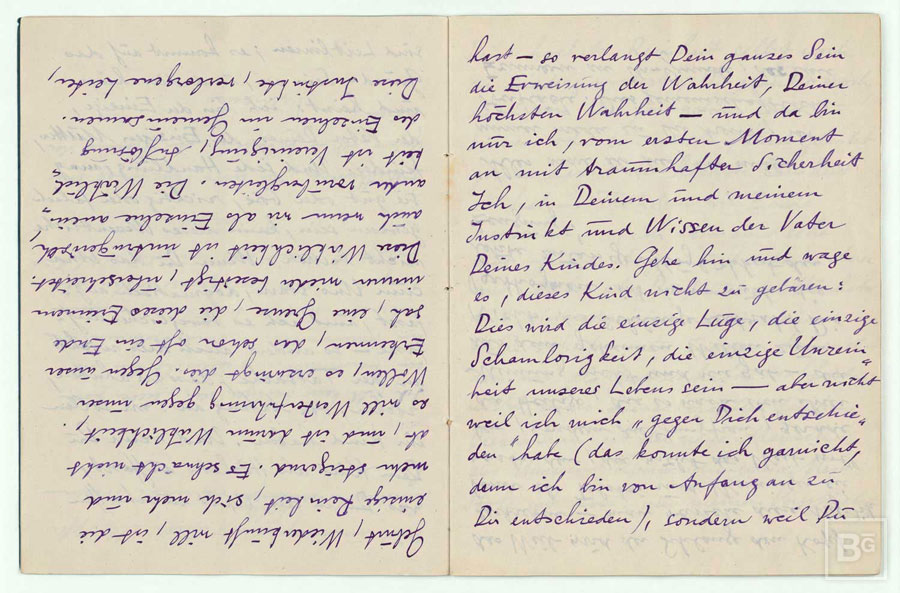 Geburt, Wiederkunft will, ist die
einzige Reinheit, sich mehr und
mehr steigernd. Es schwächt nicht
ab, und ist darum Wirklichkeit,
es will Weiterführung gegen unser
Wollen, es erzwingt dies. Gegen unser
Erkennen, das schon oft ein Ende
sah, eine Grenze, die dieses Erinnern
immer wieder beseitigt, überschreitet.
Diese Wirklichkeit ist
auch wenn wir als Einzelne anein„
ander vorübergleiten. Die Wirklich„
keit ist Vereinigung, Auflösung
des Einzelnen im Gemeinsamen.
Diese Instinkte, verborgene Leiter,
hast — so verlangt Dein ganzes Sein
die Erweisung der Wahrheit, Deiner
höchsten Wahrheit — und da bin
nur ich, vom ersten Moment
an mit traumhafter Sicherheit
Ich, in Deinem und meinem
Instinkt und Wissen der Vater
Deines Kindes. Gehe hin und wage
es, dieses Kind nicht zu gebären:
Dies wird die einzige Lüge, die einzige
Schamlosigkeit, die einzige Unrein„
heit unseres Lebens sein — aber nicht
weil ich mich „gegen Dich entschie„
den" habe (das konnte ich garnicht,
denn ich bin von Anfang an zu
Dir entschieden), sondern weil Du
BG